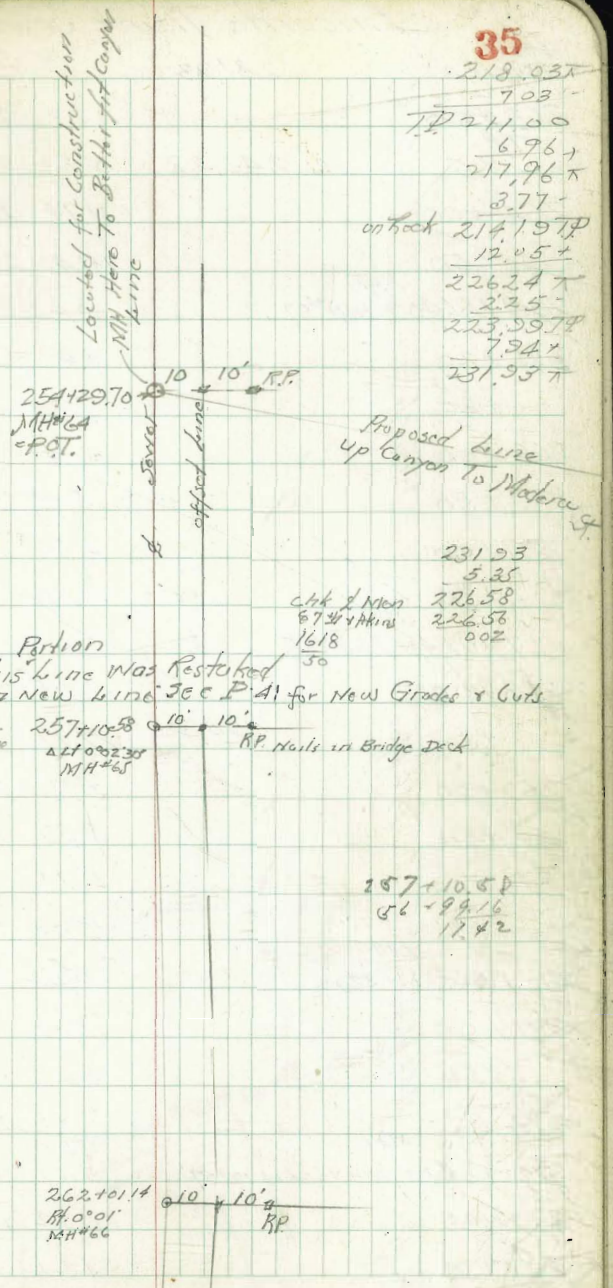 35
218.03⊼
7.03 -
T.P. 211.00
6.96 +
217.96 ⊼
3.77 -
on Rock 214.19 TP
12.05 +
226.24 ⊼
2.25 -
223.99 TP
7.94 +
231.93 ⊼
Located for Construction
MH Here To Better fit Canyon
Line
254+29.70
MH#64
=P.O.T.
10 10' R.P.
℄ Sewer
offset Line
Proposed Line
up Canyon To Madera St.
231.93
5.35
Chk Mon 226.58
67th & Akins 226.56
1618 002
50
Portion
Line Was Restaked
New Line See P-41 for New Grades & Cuts
257+10.58
Δ Lt 0°02'30"
MH#65
10' 10'
R.P. Nails in Bridge Deck
257+10.58
56+99.16
17.42
262+01.14
Rt. 0°01'
MH#66
10 10'
R.P.